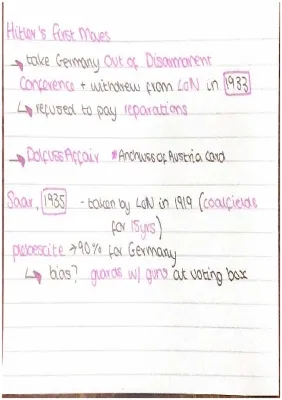 Hitler's First Moves
→ take Germany Out of Disarmament
Conference + withdrew from LoN in 1933
↳ refused to pay reparations
→ Dolfuss Affair *Anchluss of Austria card
Saar, 1935 - taken by LoN in 1919 (coalfields
for 15yrs)
plebescite → 90% for Germany
↳ bias? guards w/ guns at voting box